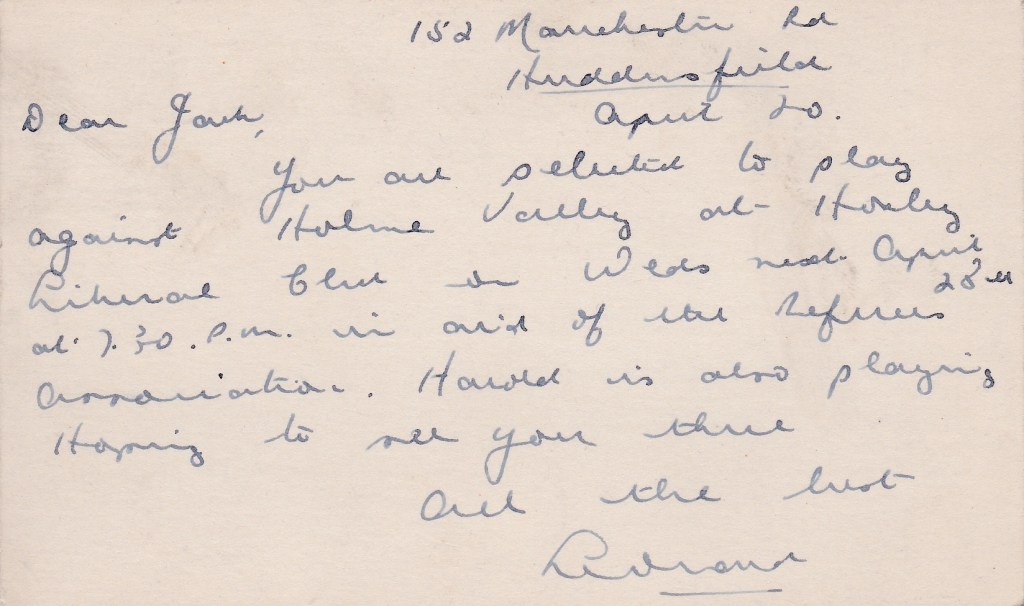 152 Manchester Rd
Huddersfield
April 20.
Dear Jack,
You are selected to play
against Holme Valley at Honley
Liberal Club on Weds next April
28th
at 7.30. P.M. in aid of the Referees
Association. Harold is also playing
Hoping to see you there
All the best